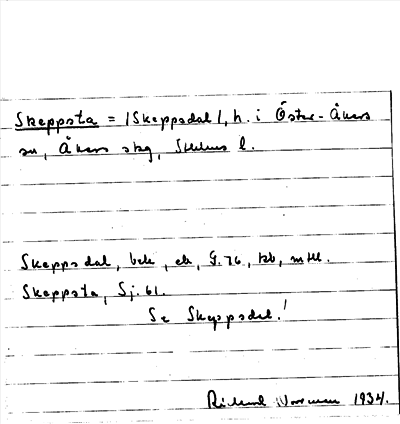 Skeppsta = /Skeppsdal/, h. i Öster-Åkers
sn, Åkers skg, Sthlms l.
Skeppsdal, bek, ek, G.76, kb, mtl.
Skeppsta, Sj. 61.
Se Skeppsdal!
Rickard Wornman 1934.